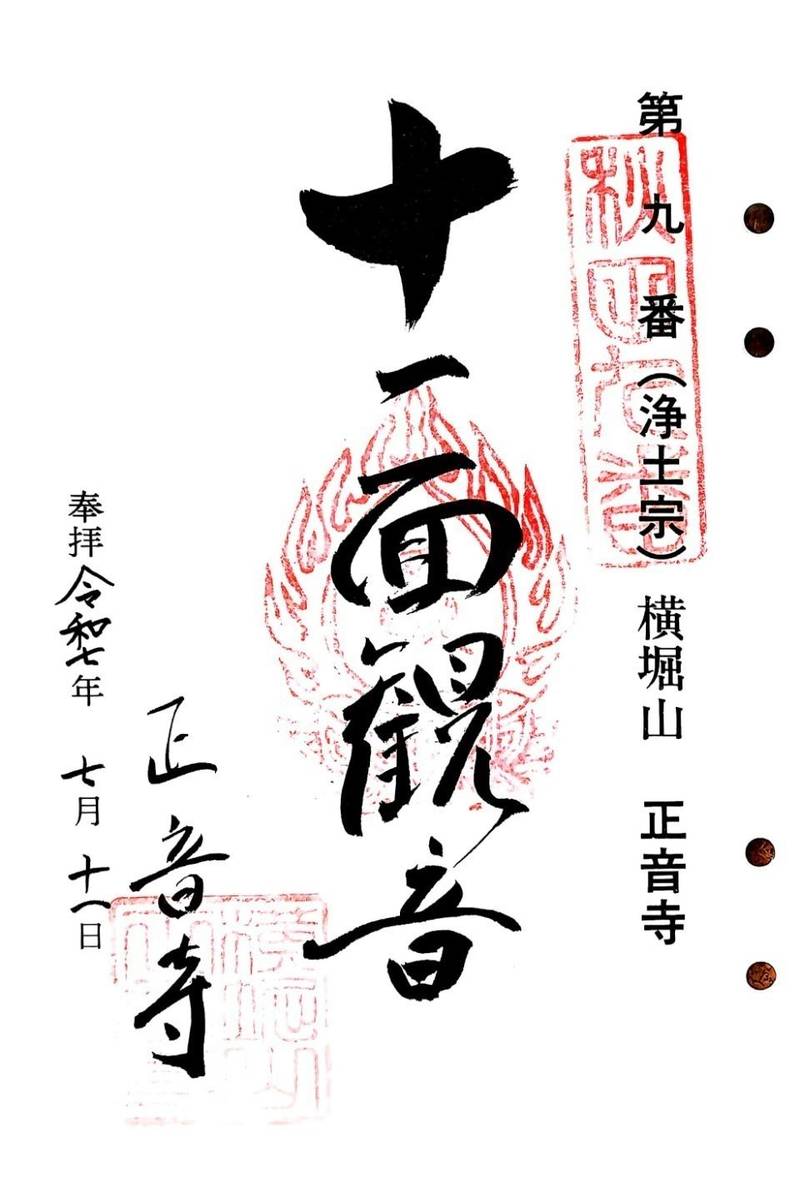 第九番（浄土宗）横堀山　正音寺
十一面観音
正音寺
奉拝 令和七年 七月 十八日